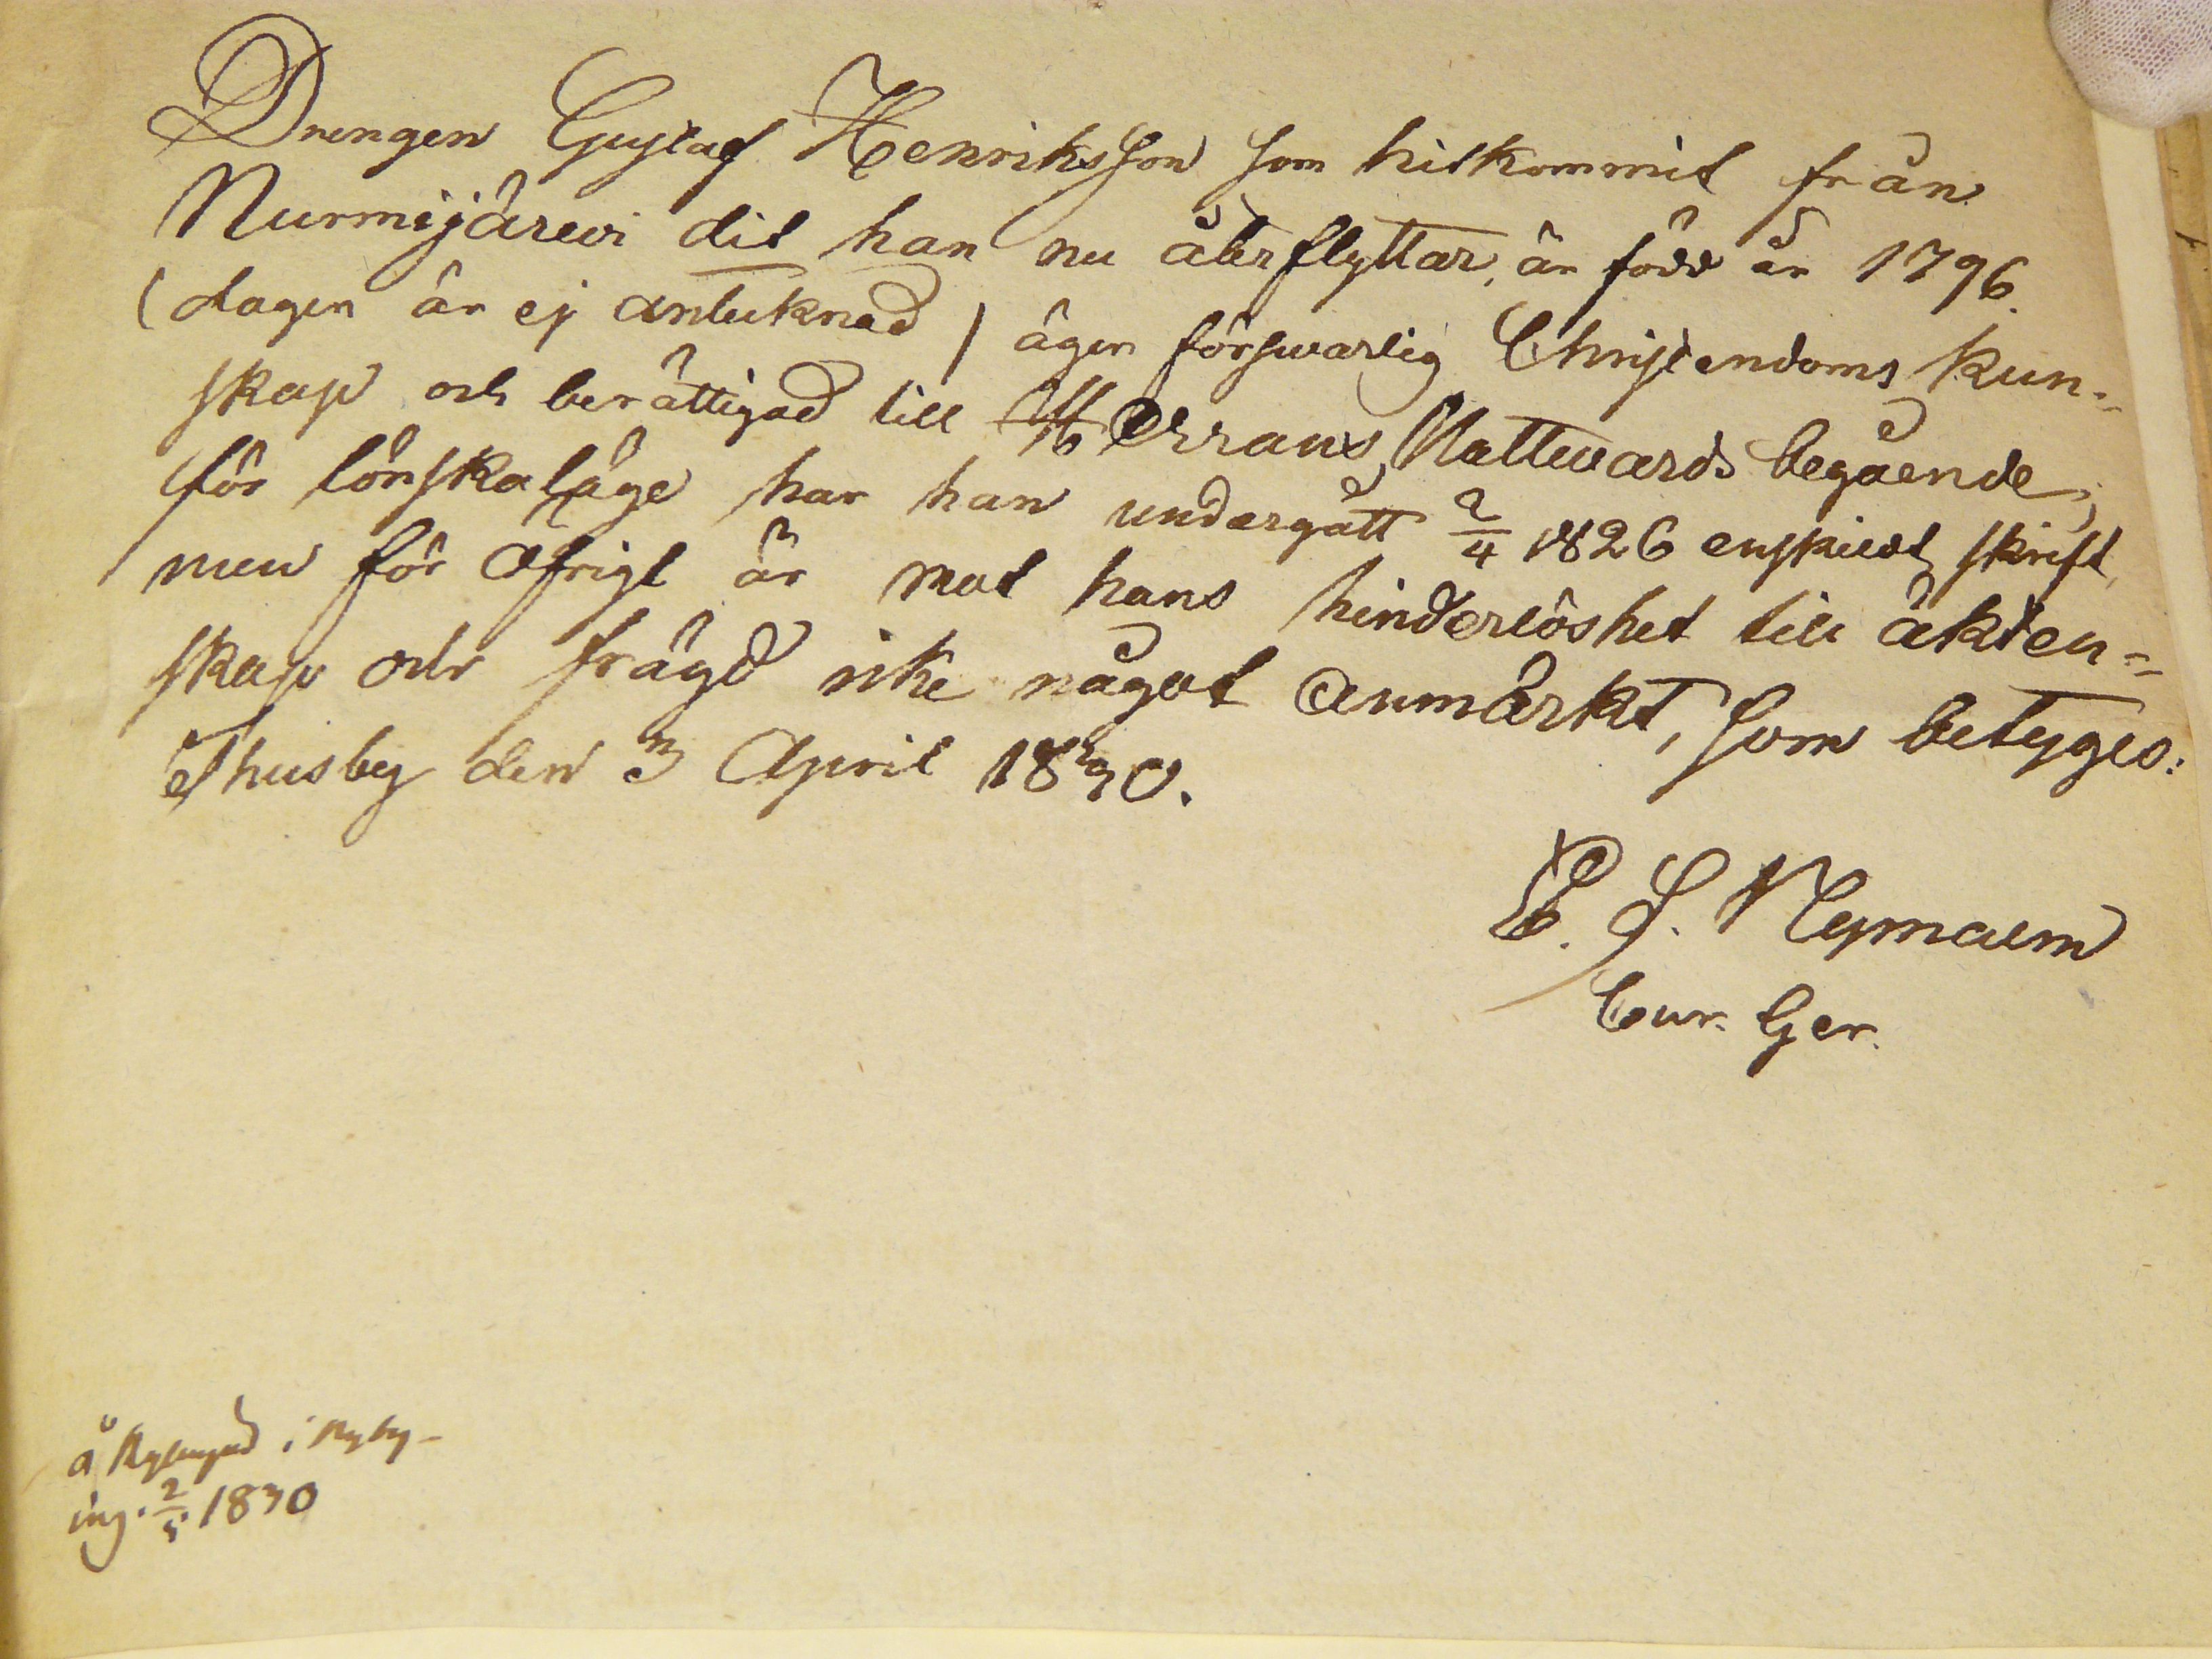 Drengen Gustaf Henriksson som hitkommit från
Nurmijärwi dit han nu återflyttar, är född år 1796.
(dagen är ej antecknad) ägen förswarlig Christendoms kun-
skap och berättigad till HErrans Nattwards begående;
för lönskaläge har han undergått 2/4 1826 enskildt skrift,
men för öfrigt är mot hans hinderlöshet till äkten-
skap och frägd icke något anmärkt, som betyges:
Thusby den 3 April 1830.
Nymalm
Cur. Ger.
å i Nyby
ing. 2/5 1830